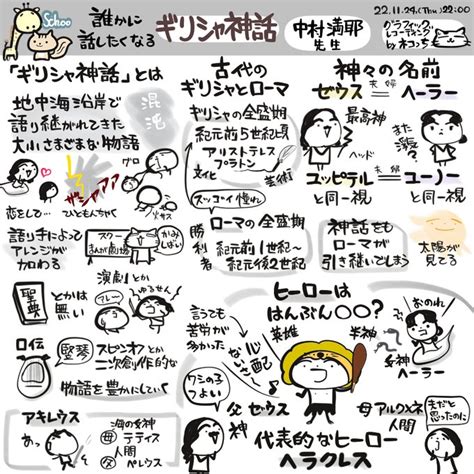 Schoo
誰かに
話したくなる
ギリシャ神話
中村満耶
先生
22.11.24.(Thu)22:00
グラフィック
レコーディング
by ネコっち
「ギリシャ神話」とは
地中海沿岸で
語り継がれてきた
大小さまざまな物語
混沌
恋をして…
ひともんちゃく
語り手によって
アレンジが
加わる
聖典
とかは
無い
演劇とか
口伝
竪琴
スピンオフとか
二次創作的な
物語を豊かにしていく
アキレウス
あっ
海の女神
母 テティス
人間
父 ペレウス
古代の
ギリシャとローマ
ギリシャの全盛期
紀元前5世紀頃
アリストテレス
プラトン
文化
芸術
スッゴーイ 憧れ
ローマの全盛期
勝利者
紀元前1世紀〜
紀元後2世紀
神々の名前
ゼウス
夫婦
ヘーラー
最高神
また
浮気?
ヘッド
ユッピテル
夫婦
ユーノー
と同一視
と同一視
神話も
ローマが
引き継いでしまう
太陽が
見てる
ヒーローは
はんぶん〇〇?
言うても
苦労が
多かった
心配
ないさー
英雄
半神
おのれ
女神
ヘーラー
ワシの子
つよい
父 ゼウス
神
母 アルクメネ
人間
夫だと
思ったのに
代表的なヒーロー
ヘラクレス